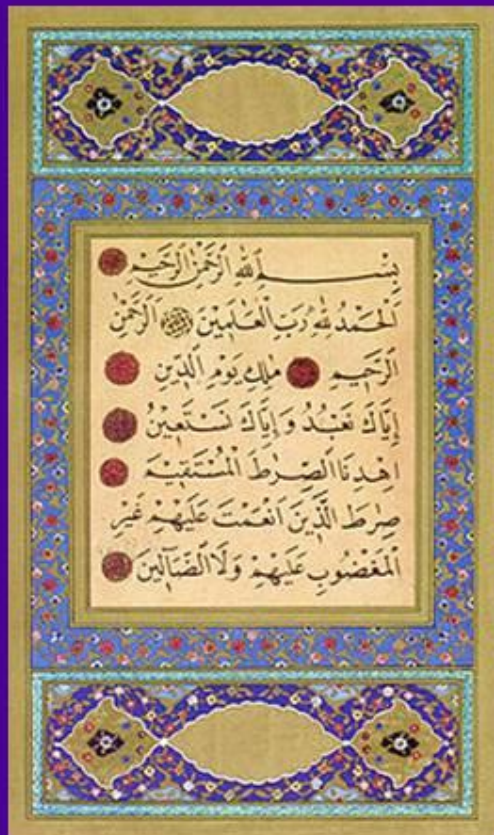 بِسْمِ اللهِ الرَّحْمٰنِ الرَّحِيمِ
اَلْحَمْدُ لِلهِ رَبِّ الْعَالَمِينَ الرَّحْمٰنِ
الرَّحِيمِ مٰلِكِ يَوْمِ الدِّينِ
إِيَّاكَ نَعْبُدُ وَإِيَّاكَ نَسْتَعِينُ
اِهْدِنَا الصِّرٰطَ الْمُسْتَقِيمَ
صِرٰطَ الَّذِينَ اَنْعَمْتَ عَلَيْهِمْ غَيْرِ
الْمَغْضُوبِ عَلَيْهِمْ وَلَا الضَّآلِّينَ